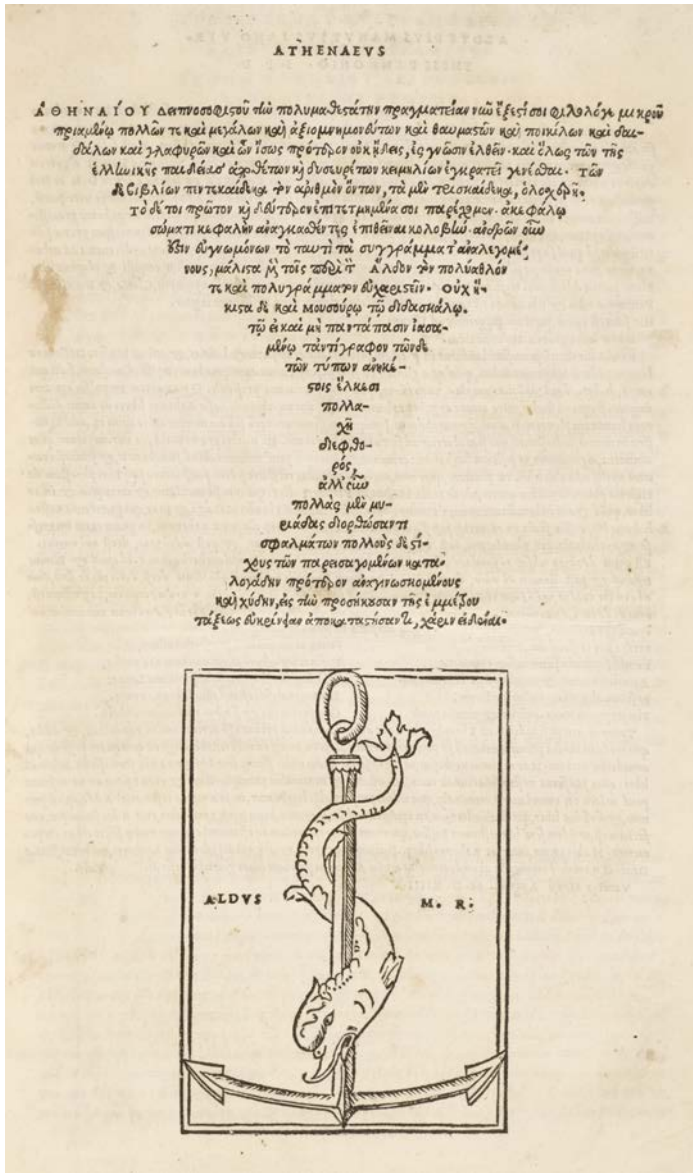 ATHENAEVS
ἈΘΗΝΑΊΟΥ Δειπνοσοφιστοῦ τὴν πολυμαθεστάτην πραγματείαν νῦν ἔξεστί σοι φιλολόγε μικροῦ
πριαμένῳ πολλῶν τε καὶ μεγάλων καὶ ἀξιομνημονεύτων καὶ θαυμαστῶν καὶ ποικίλων καὶ δαι-
δάλων καὶ γλαφυρῶν καὶ ὧν ἴσως πρότερον οὐκ ᾔδεις, ἐς γνῶσιν ἐλθεῖν· καὶ ὅλως τῶν τῆς
ἑλληνικῆς παιδείας ἀποθέτων κὴ δυσευρέτων κειμηλίων ἐγκρατεῖ γενέσθαι. τῶν
δὲ βιβλίων πεντεκαίδεκα τὸν ἀριθμὸν ὄντων, τὰ μὲν τρισκαίδεκα, ὁλοσχερῆ.
τὸ δέ τοι πρῶτον κὴ δεύτερον ἐπιτετμημένα σοι παρέχομεν. ἀκεφάλῳ
σώματι κεφαλὴν ἀναγκασθέντες ἐπιθεῖναι κολοβήν. ἀνδρῶν οὖν
οὖσιν εὐγνωμόνων τὸ ταυτὶ τὰ συγγράμματ' ἀναλεγομέ-
νους, μάλιστα τοῖς Ἄλδον τὸν πολύαθλόν
τε καὶ πολυγράμματον εὐχαριστεῖν. Οὐχ ἥ-
κιστα δὲ καὶ Μουσούρῳ τῷ διδασκάλῳ.
τῷ εἰ καὶ μὴ παντάπασιν ἰασα-
μένῳ τἀντίγραφον τῶνδε
τῶν τύπων ἀνηκέ-
στοις ἕλκεσι
πολλα-
χῆ
διεφθο-
ρός,
ἀλλ' οὖν
πολλὰς μὲν μυ-
ριάδας διορθώσαντι
σφαλμάτων πολλοὺς δὲ στί-
χους τῶν παρεισαγομένων κατα-
λογάδην πρότερον ἀναγινωσκομένους
καὶ χύδην, εἰς τὴν προσήκουσαν τῆς ἐμμέτρου
τάξεως εὐκρίνειαν ἀποκαταστήσαντι, χάριν εἰδέναι.
ALDVS M. R.